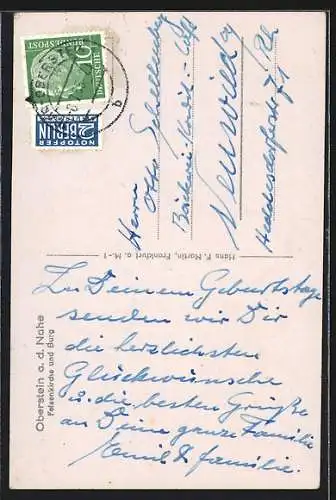 Zu Deinem Geburtstage
senden wir Dir
die herzlichsten
Glückwünsche
u. die besten Grüße
an Deine ganze Familie
Emil & Familie.
Herrn
Otto Schellenberg
Neuwied / Rh
Oberstein a. d. Nahe
Felsenkirche und Burg
Hans F. Martin, Frankfurt a. M.-1
DEUTSCHE
BUNDESPOST
10
NOTOPFER
2 BERLIN
STEUERMARKE
b